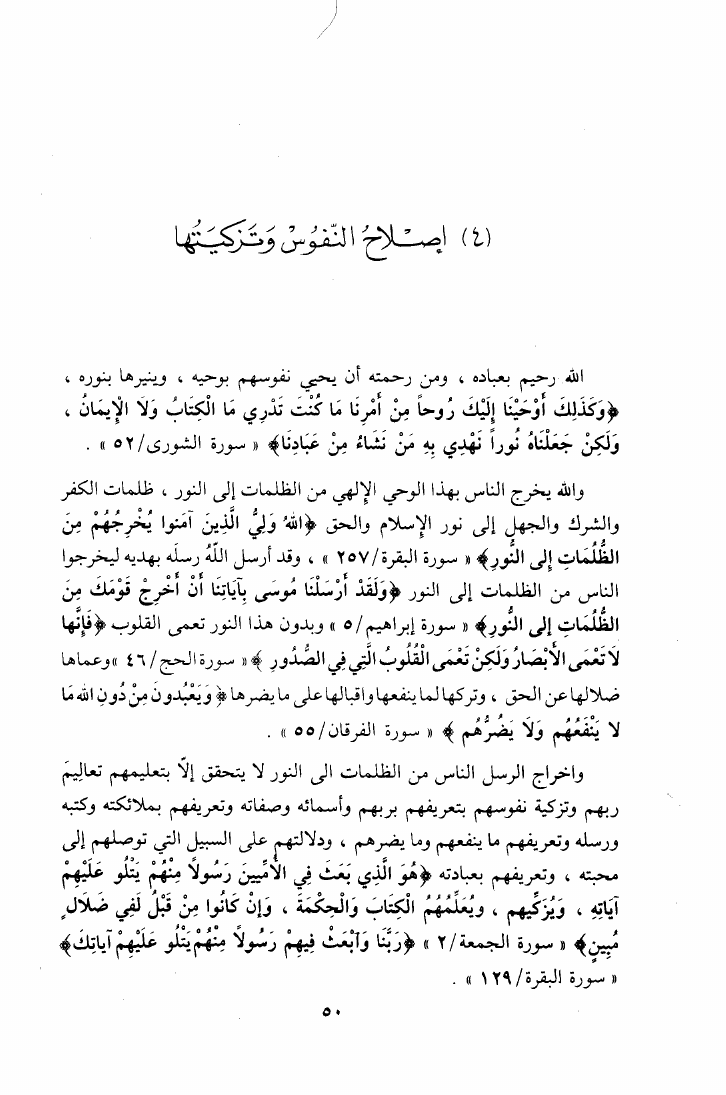 (٤) إصْلَاحُ النّفُوسْ وَتَزكيَتُها
الله رحيم بعباده ، ومن رحمته أن يحيي نفوسهم بوحيه ، وينيرها بنوره ،
﴿وَكَذَلِكَ أَوْحَيْنَا إِلَيْكَ رُوحاً مِنْ أَمْرِنَا مَا كُنْتَ تَدْرِي مَا الْكِتَابُ وَلَا الْإِيمَانُ ،
وَلَكِنْ جَعَلْنَاهُ نُوراً نَهْدِي بِهِ مَنْ نَشَاءُ مِنْ عَبَادِنَا﴾ « سورة الشورى/٥٢ » .
والله يخرج الناس بهذا الوحي الإلهي من الظلمات إلى النور ، ظلمات الكفر
والشرك والجهل إلى نور الإسلام والحق ﴿اللهُ وَلِيُّ الَّذِينَ آمَنوا يُخْرِجُهُمْ مِنَ
الظُّلُمَاتِ إِلى النُّورِ﴾ « سورة البقرة/٢٥٧ » ، وقد أرسل اللّهُ رسلَه بهديه ليخرجوا
الناس من الظلمات إلى النور ﴿وَلَقَدْ أَرْسَلْنَا مُوسَى بِآيَاتِنَا أَنْ أَخْرِجْ قَوْمَكَ مِنَ
الظُّلُمَاتِ إِلى النُّورِ﴾ « سورة إبراهيم/٥ » وبدون هذا النور تعمى القلوب ﴿فَإِنَّها
لَا تَعْمَى الأَبْصَارُ وَلَكِنْ تَعْمَى الْقُلُوبُ الَّتِي فِي الصُّدُورِ ﴾« سورة الحج/٤٦ »وعماها
ضلالها عن الحق ، وتركها لما ينفعها واقبالها على ما يضرها ﴿ وَيَعْبُدونَ مِنْ دُونِ الله مَا
لا يَنْفَعُهُم وَلَا يَضُرُّهُم ﴾ « سورة الفرقان/٥٥ » .
واخراج الرسل الناس من الظلمات الى النور لا يتحقق إلّا بتعليمهم تعاليمَ
ربهم وتزكية نفوسهم بتعريفهم بربهم وأسمائه وصفاته وتعريفهم بملائكته وكتبه
ورسله وتعريفهم ما ينفعهم وما يضرهم ، ودلالتهم على السبيل التي توصلهم إلى
محبته ، وتعريفهم بعبادته ﴿هُوَ الَّذِي بَعَثَ فِي الأُمِّيينَ رَسُولاً مِنْهُمْ يَتْلُو عَلَيْهِمْ
آيَاتِهِ ، وَيُزَكِّيهِم ، ويُعَلِّمُهُمُ الْكِتَابَ وَالْحِكْمَةَ ، وَإِنْ كَانُوا مِنْ قَبْلُ لَفِي ضَلَالٍ
مُبِينٍ﴾ « سورة الجمعة/٢ » ﴿رَبَّنَا وَآبْعَثْ فِيهِمْ رَسُولاً مِنْهُمْ يَتْلُو عَلَيْهِمْ آيَاتِكَ﴾
« سورة البقرة/١٢٩ » .
٥٠